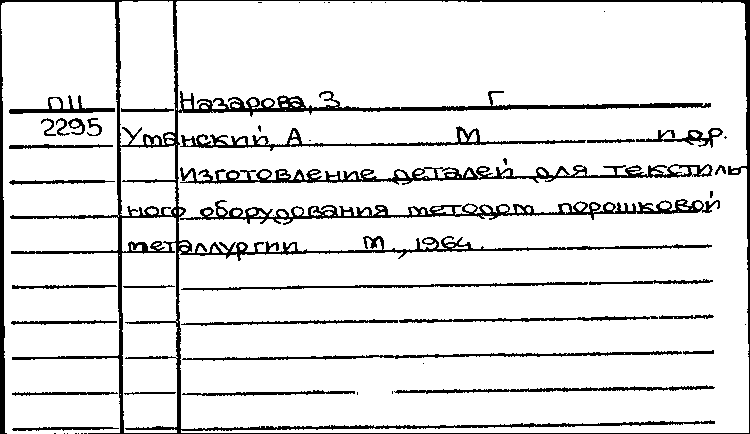 ПЦ Назарова, З Г
2295 Уманский, А М и др.
Изготовление деталей для текстиль
ного оборудования методом порошковой
металлургии. М., 1964.